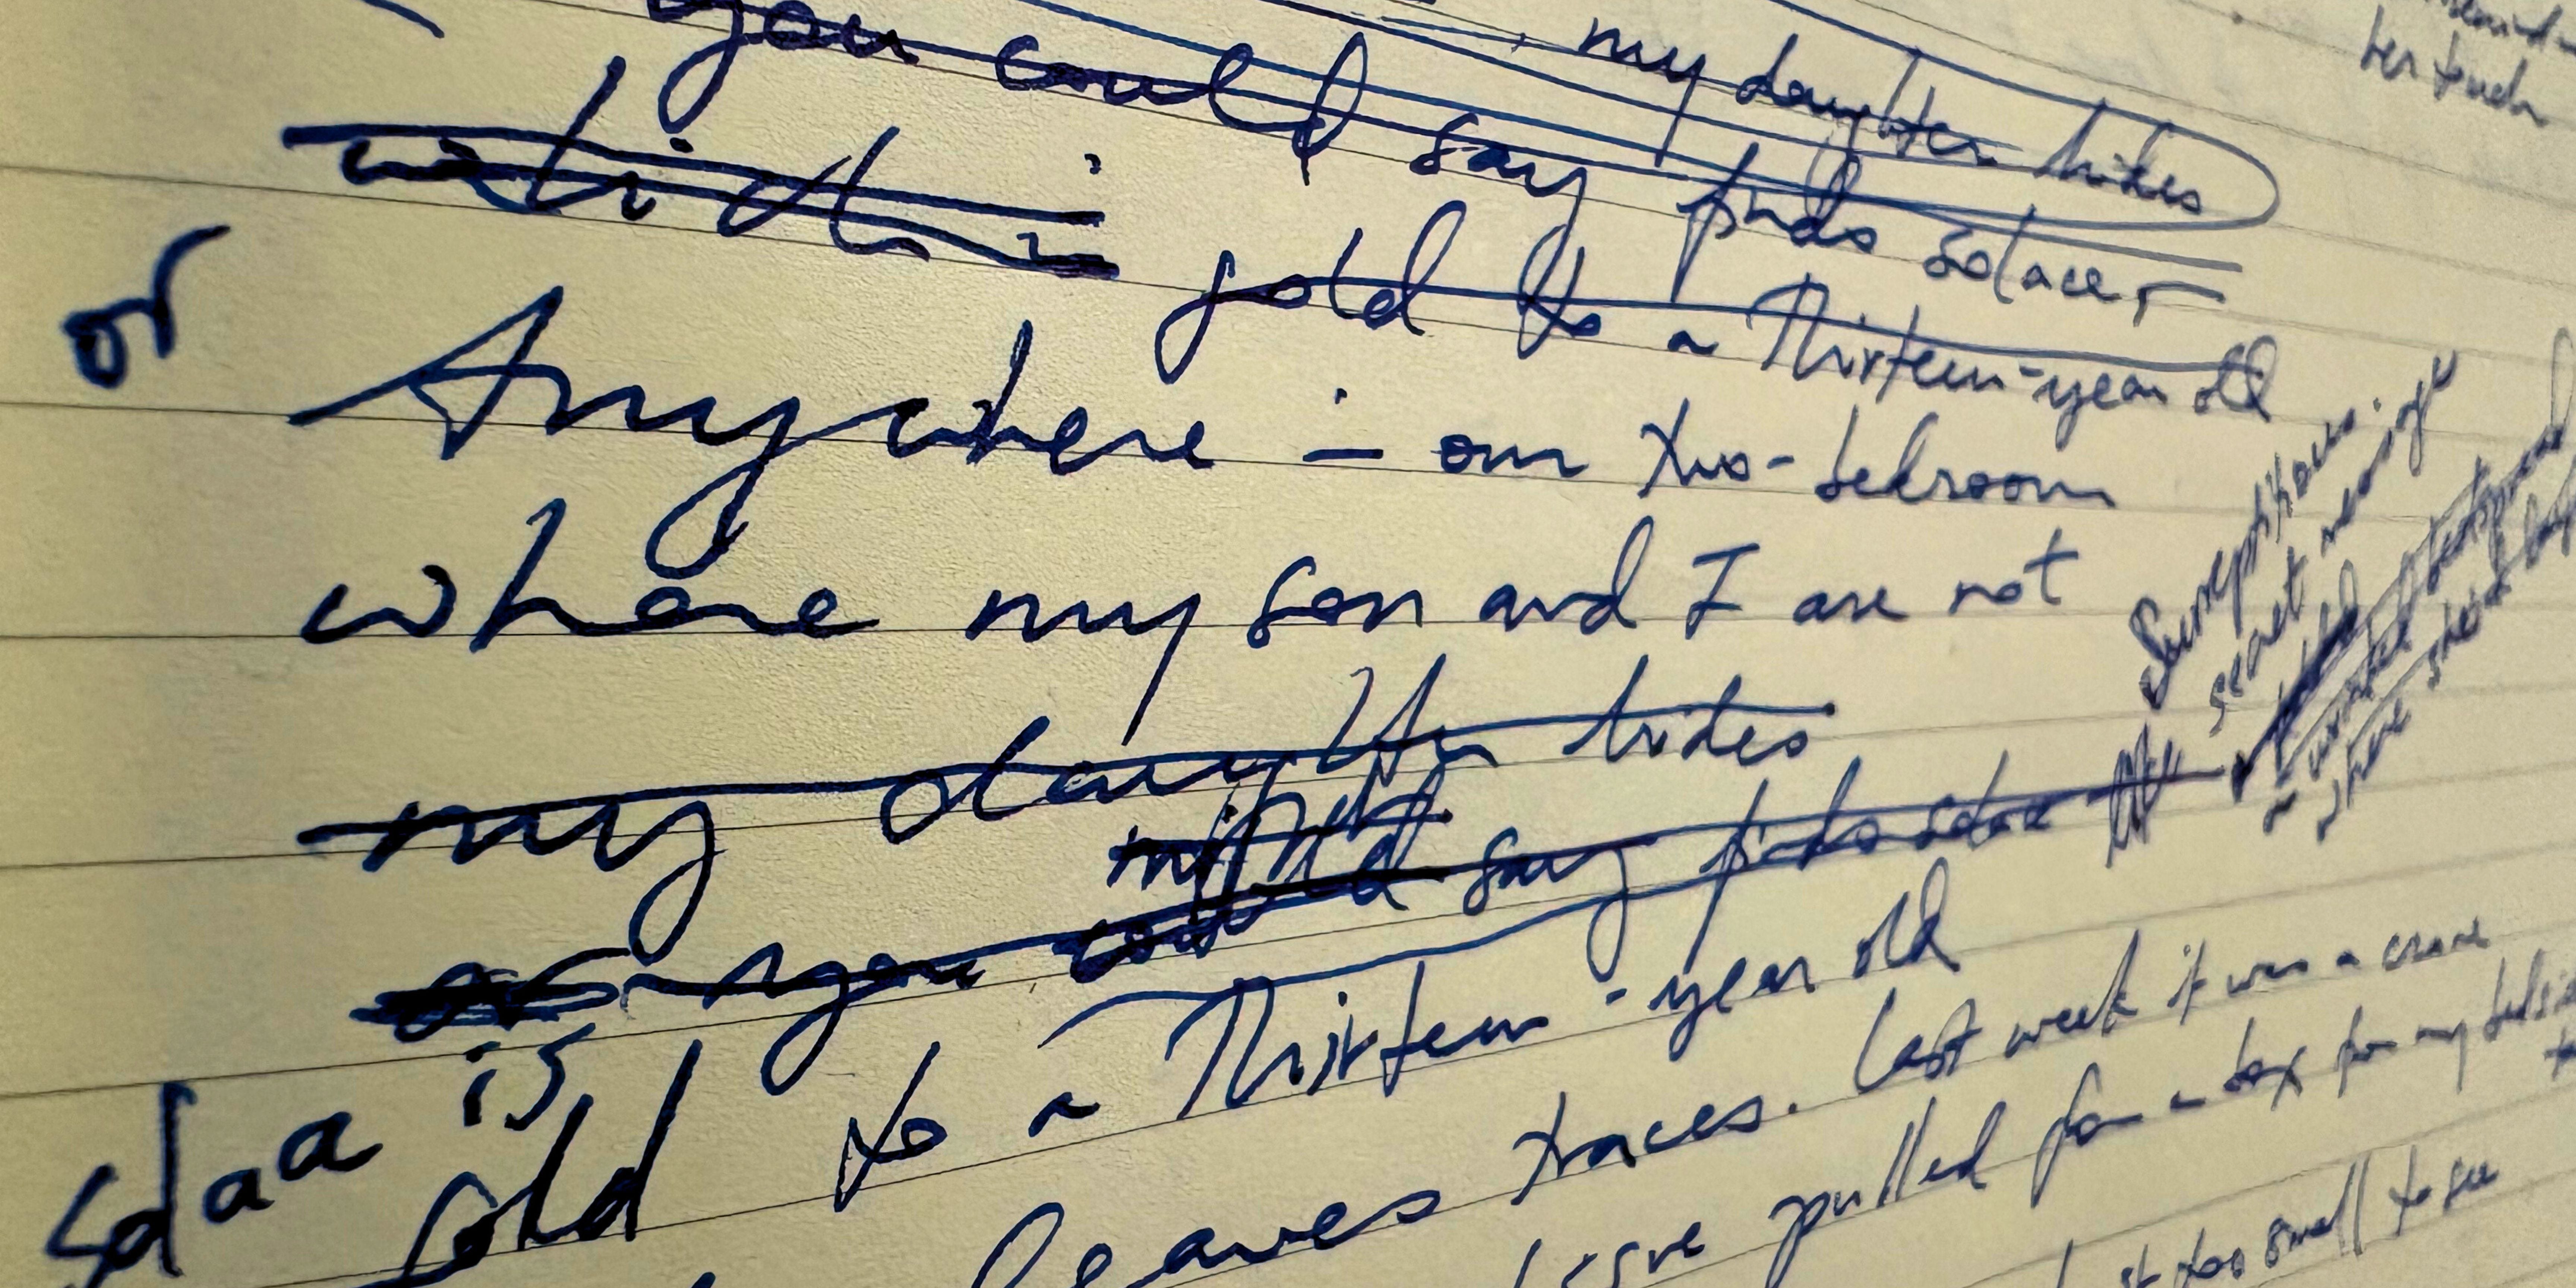 my daughter hides
you could say finds solace,
which is
gold to a thirteen-year old
or
Anywhere in our two-bedroom
where my son and I are not
my daughter hides
might
or you could say finds solace
is
gold to a thirteen-year old
leaves traces. Last week it was a crane
tissue pulled from a box from my bedside
too small to see
her touch
Surreptitious
secret message
where she'd